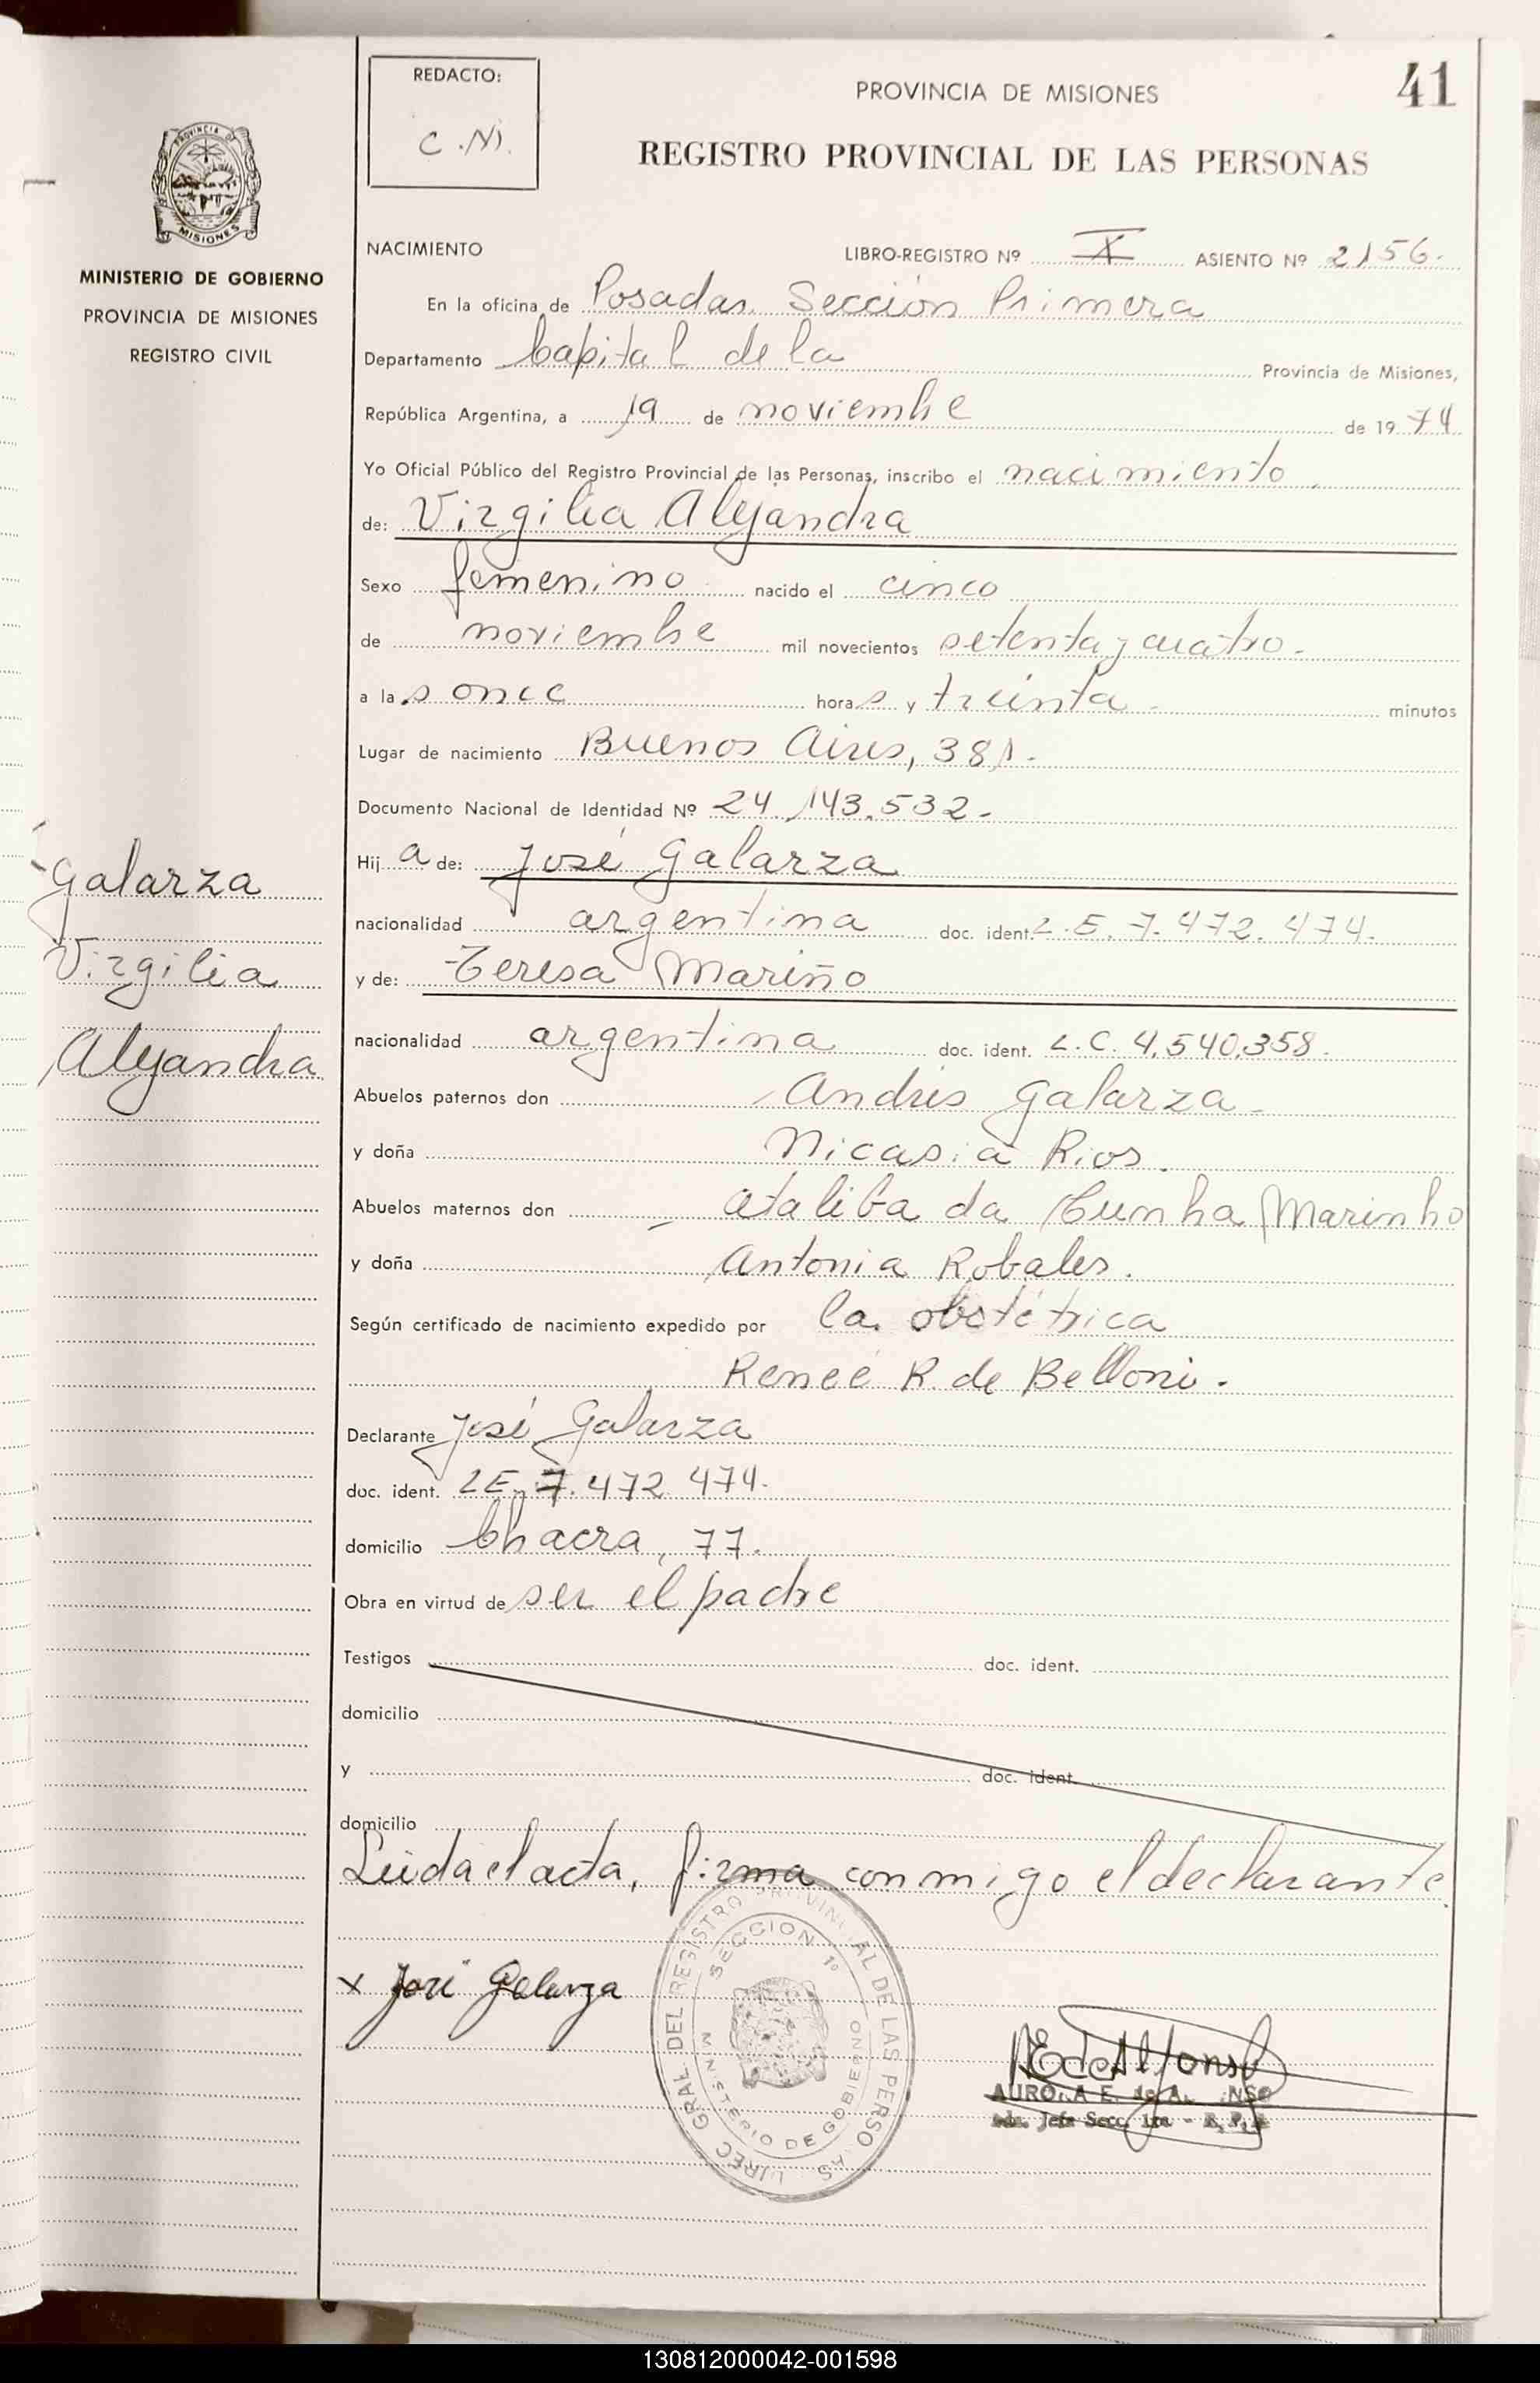 41
REDACTO:
C.N.
PROVINCIA DE MISIONES
REGISTRO PROVINCIAL DE LAS PERSONAS
PROVINCIA DE MISIONES
MINISTERIO DE GOBIERNO
PROVINCIA DE MISIONES
REGISTRO CIVIL
NACIMIENTO LIBRO-REGISTRO Nº X ASIENTO Nº 2156.
En la oficina de Posadas Sección Primera
Departamento Capital de la Provincia de Misiones,
República Argentina, a 19 de noviembre de 1974
Yo Oficial Público del Registro Provincial de las Personas, inscribo el nacimiento
de: Virgilia Alejandra
Sexo femenino nacido el cinco
de noviembre mil novecientos setenta y cuatro.
a las once horas y treinta minutos
Lugar de nacimiento Buenos Aires, 381.
Documento Nacional de Identidad Nº 24.143.532.
Hija de: José Galarza
nacionalidad argentina doc. ident. L.E. 7.472.474.
y de: Teresa Mariño
nacionalidad argentina doc. ident. L.C. 4.540.358.
Abuelos paternos don Andrés Galarza
y doña Nicasia Rios.
Abuelos maternos don Ataliba da Cunha Marinho
y doña Antonia Robales.
Según certificado de nacimiento expedido por la obstétrica
Reneé R. de Belloni.
Declarante José Galarza
doc. ident. LE. 7.472 474.
domicilio Chacra, 77.
Obra en virtud de ser el padre
Testigos doc. ident.
domicilio
y doc. ident.
domicilio
Leida el acta, firma conmigo el declarante
Galarza
Virgilia
Alejandra
x José Galarza
DIREC GRAL DEL REGISTRO PROVINCIAL DE LAS PERSONAS
SECCION 1º
MINISTERIO DE GOBIERNO
E de Alfonso
AURORA E. de ALFONSO
Jefe Secc. 1ra - R.P.P.
130812000042-001598